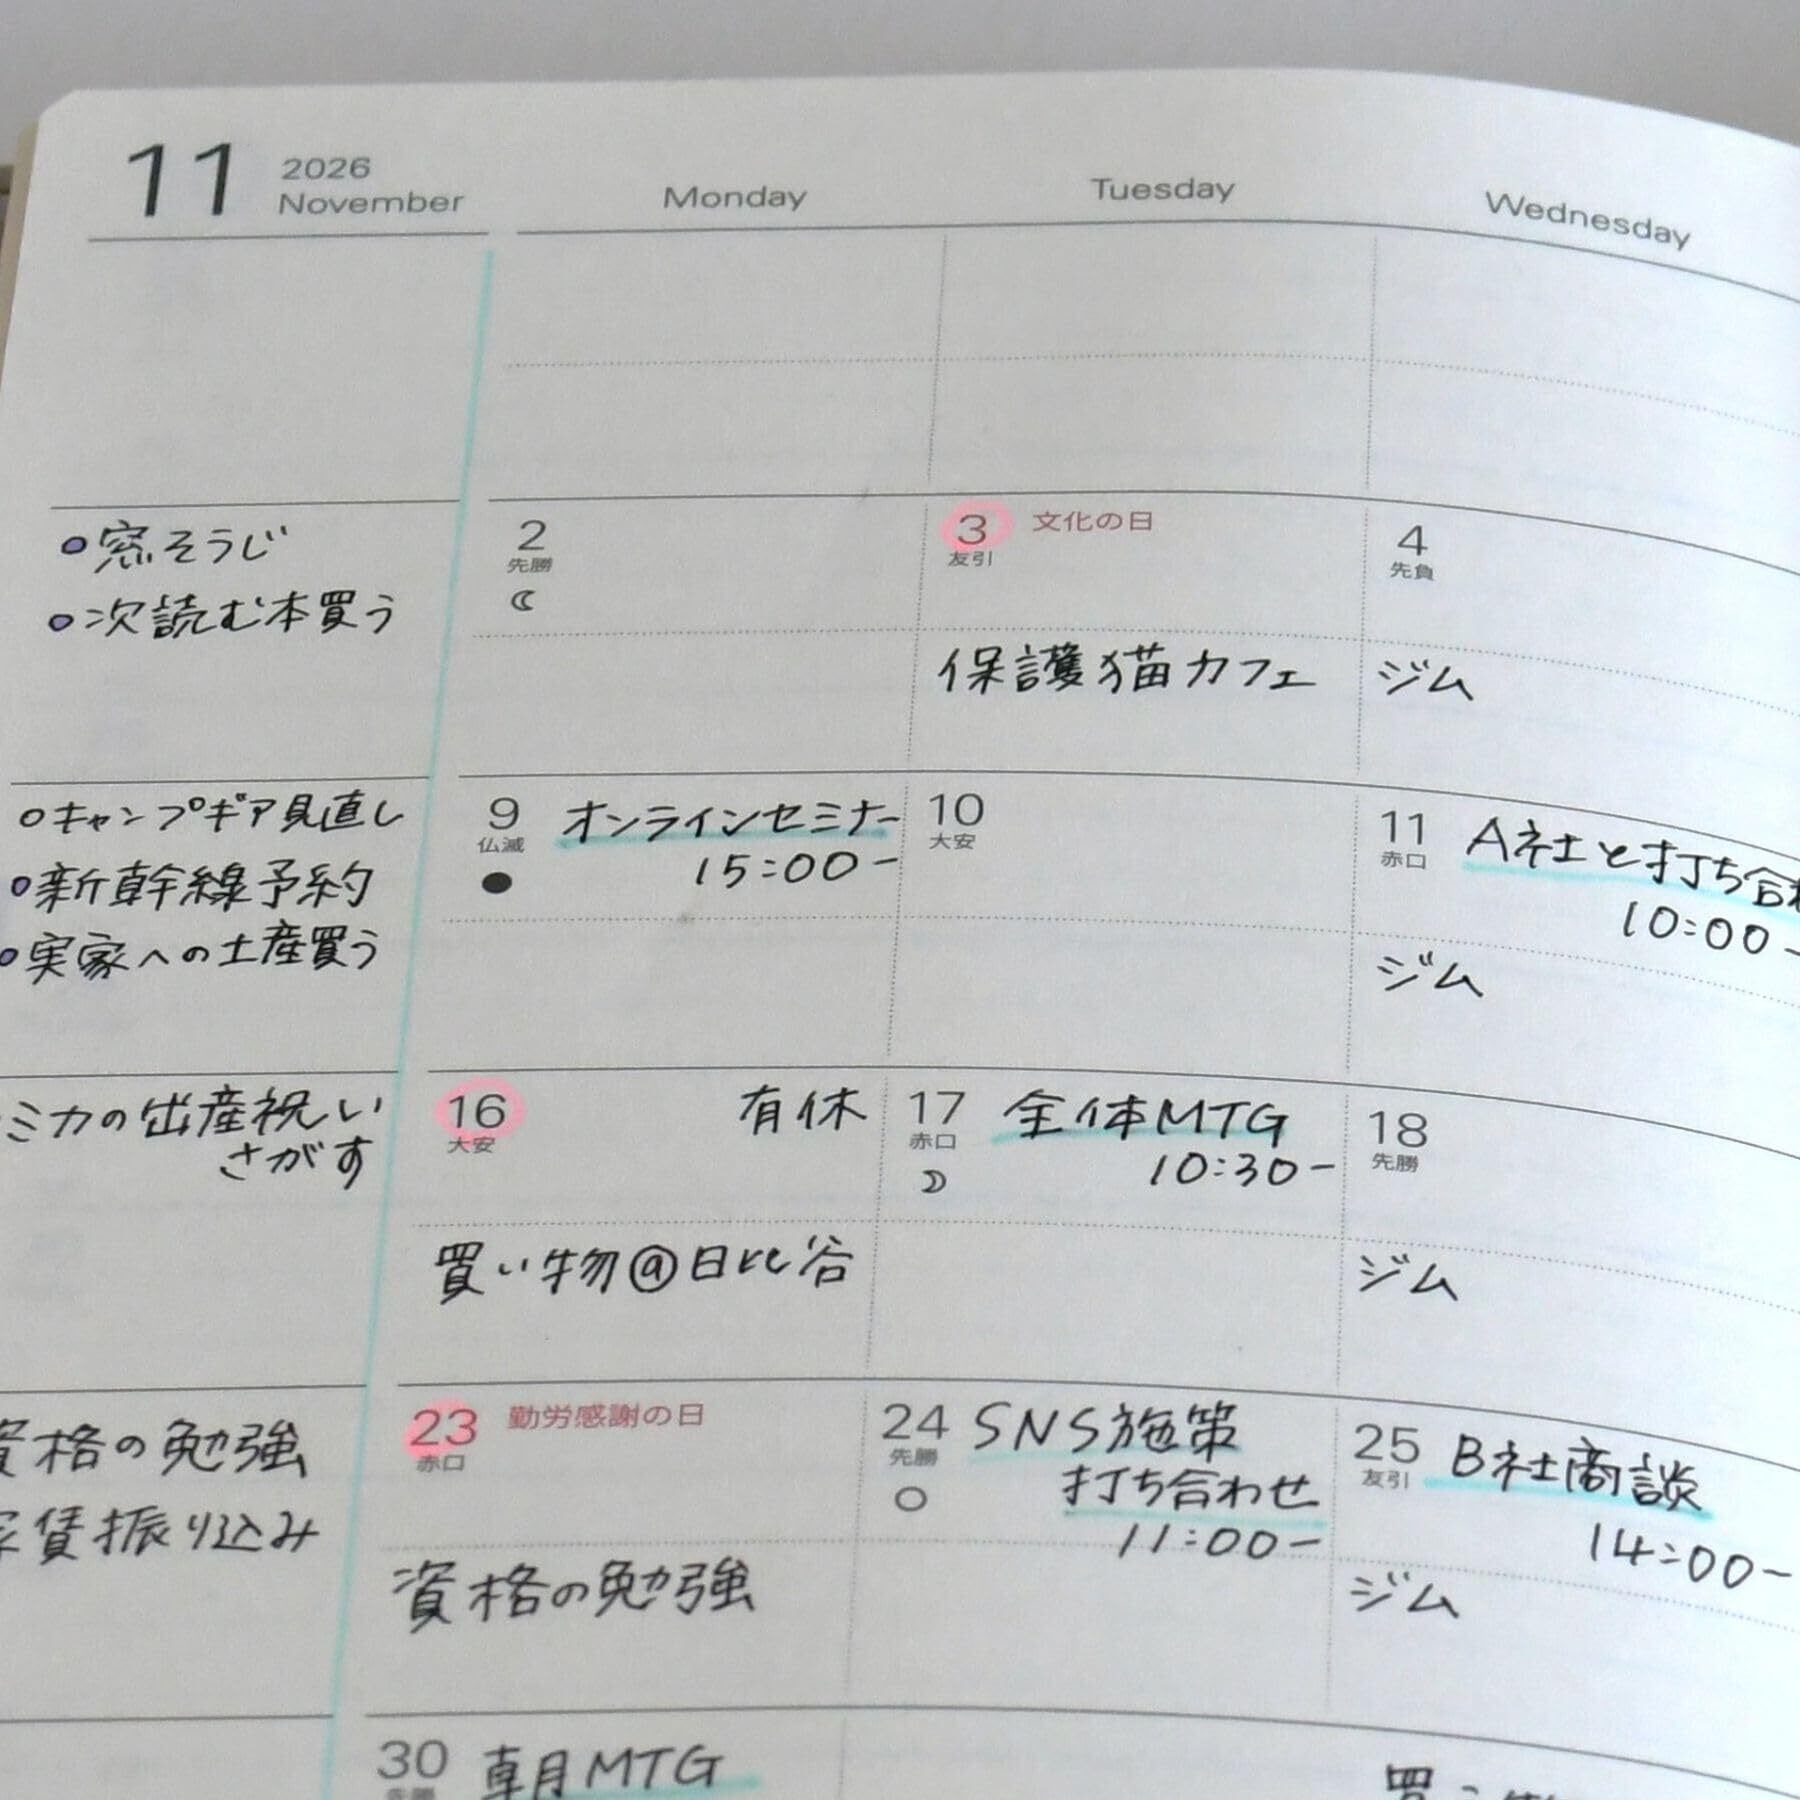 11 2026
November
Monday Tuesday Wednesday
窓そうじ
次読む本買う
2 先勝
3 友引 文化の日
保護猫カフェ
4 先負
ジム
キャンプギア見直し
新幹線予約
実家への土産買う
9 仏滅 オンラインセミナー
15:00-
10 大安
11 赤口 A社と打ち合
10:00-
ジム
ミカの出産祝い
さがす
16 大安 有休
買い物@日比谷
17 赤口 全体MTG
10:30-
18 先勝
ジム
資格の勉強
家賃振り込み
23 赤口 勤労感謝の日
資格の勉強
24 先勝 SNS施策
打ち合わせ
11:00-
25 友引 B社商談
14:00-
ジム
30 朝MTG
買